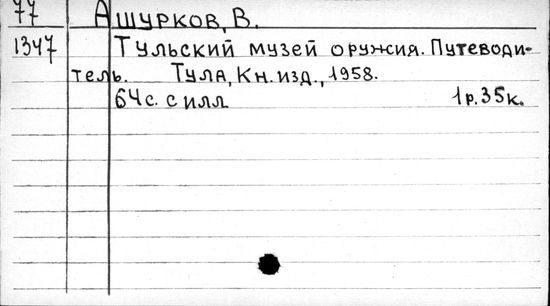 77 Ашурков, В.
1347 Тульский музей оружия. Путеводи-
тель. Тула, Кн. изд., 1958.
64 с. с илл 1р. 35к.